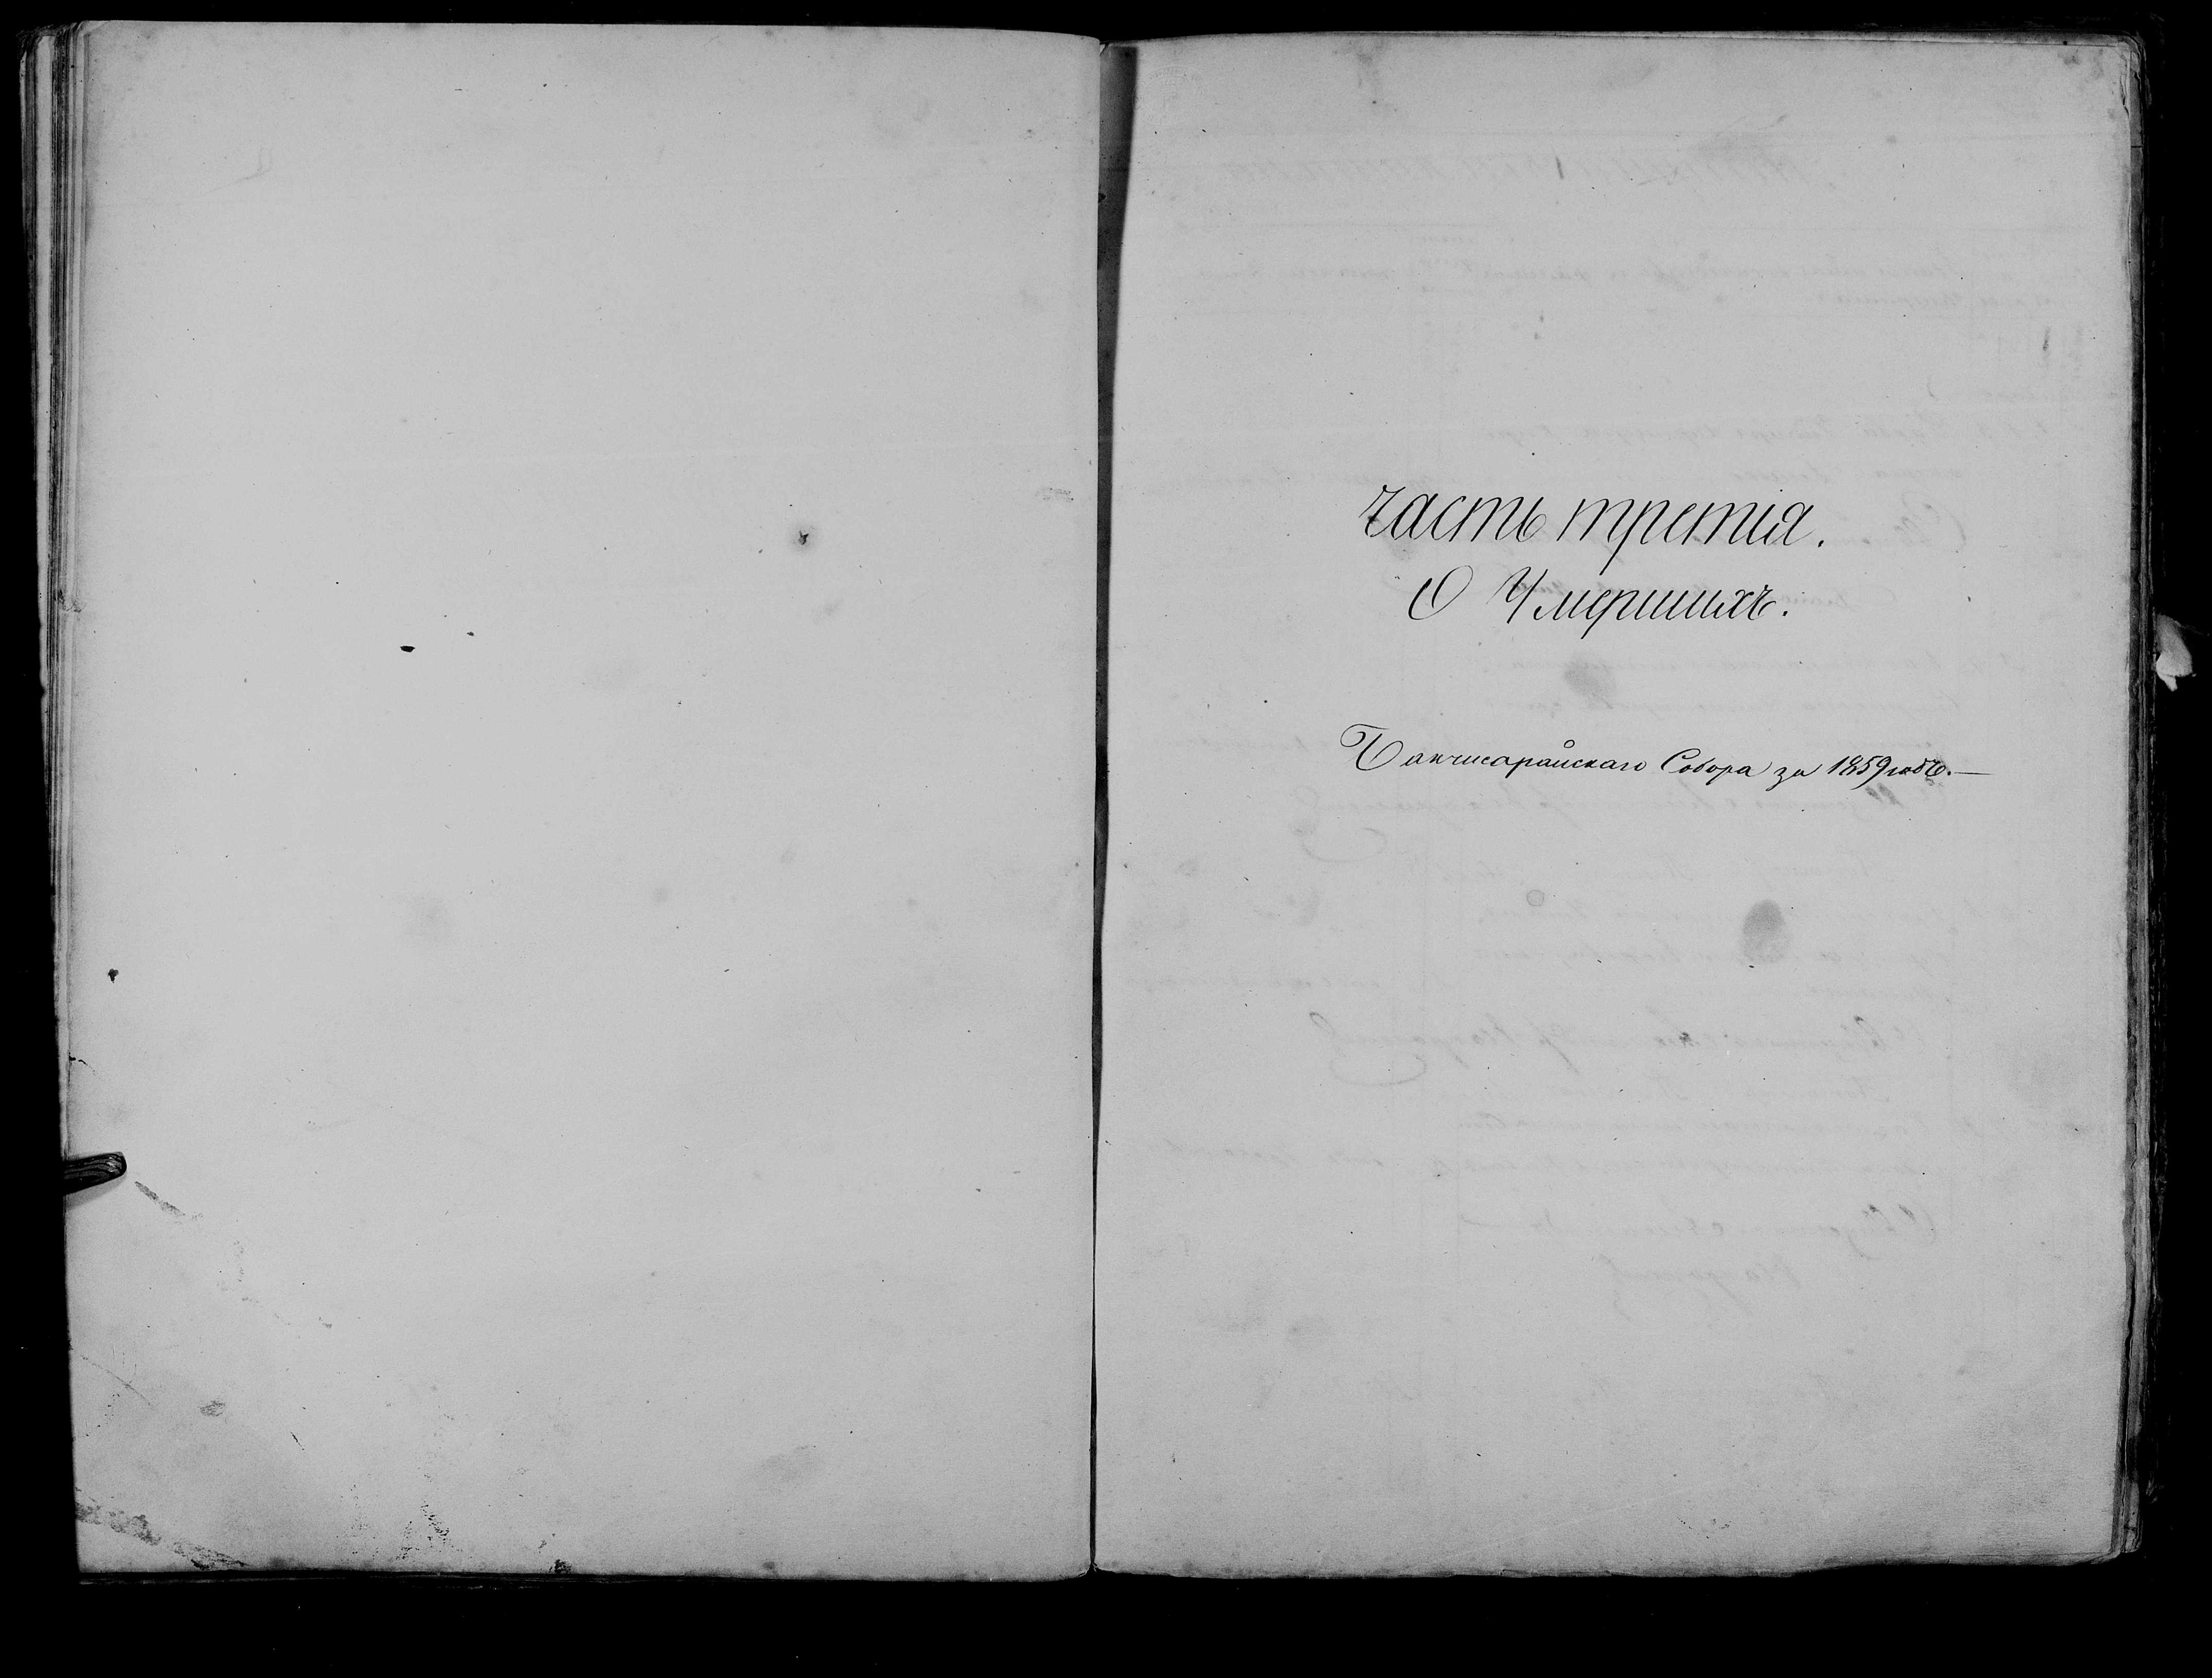 часть третія.
О Умершихъ.
Бакчисарайскаго Собора за 1859 годъ. —